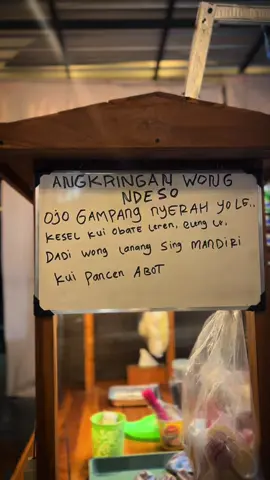 ANGKRINGAN WONG
NDESO
OJO GAMPANG NYERAH YO LE..
KESEL KUI OBATE LEREN, ELENG LE.
DADI WONG LANANG SING MANDIRI
KUI PANCEN ABOT